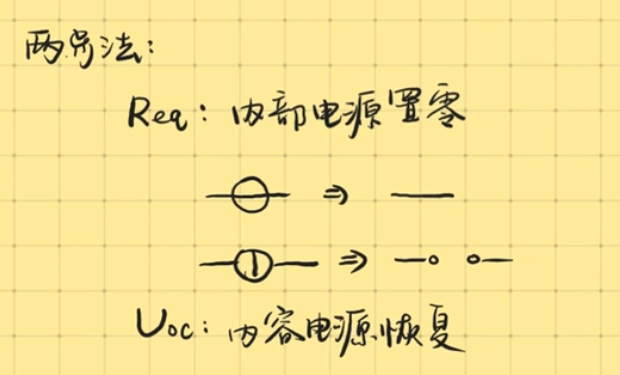 两步法：
Req：内部电源置零
⇒
⇒
Uoc：内容电源恢复